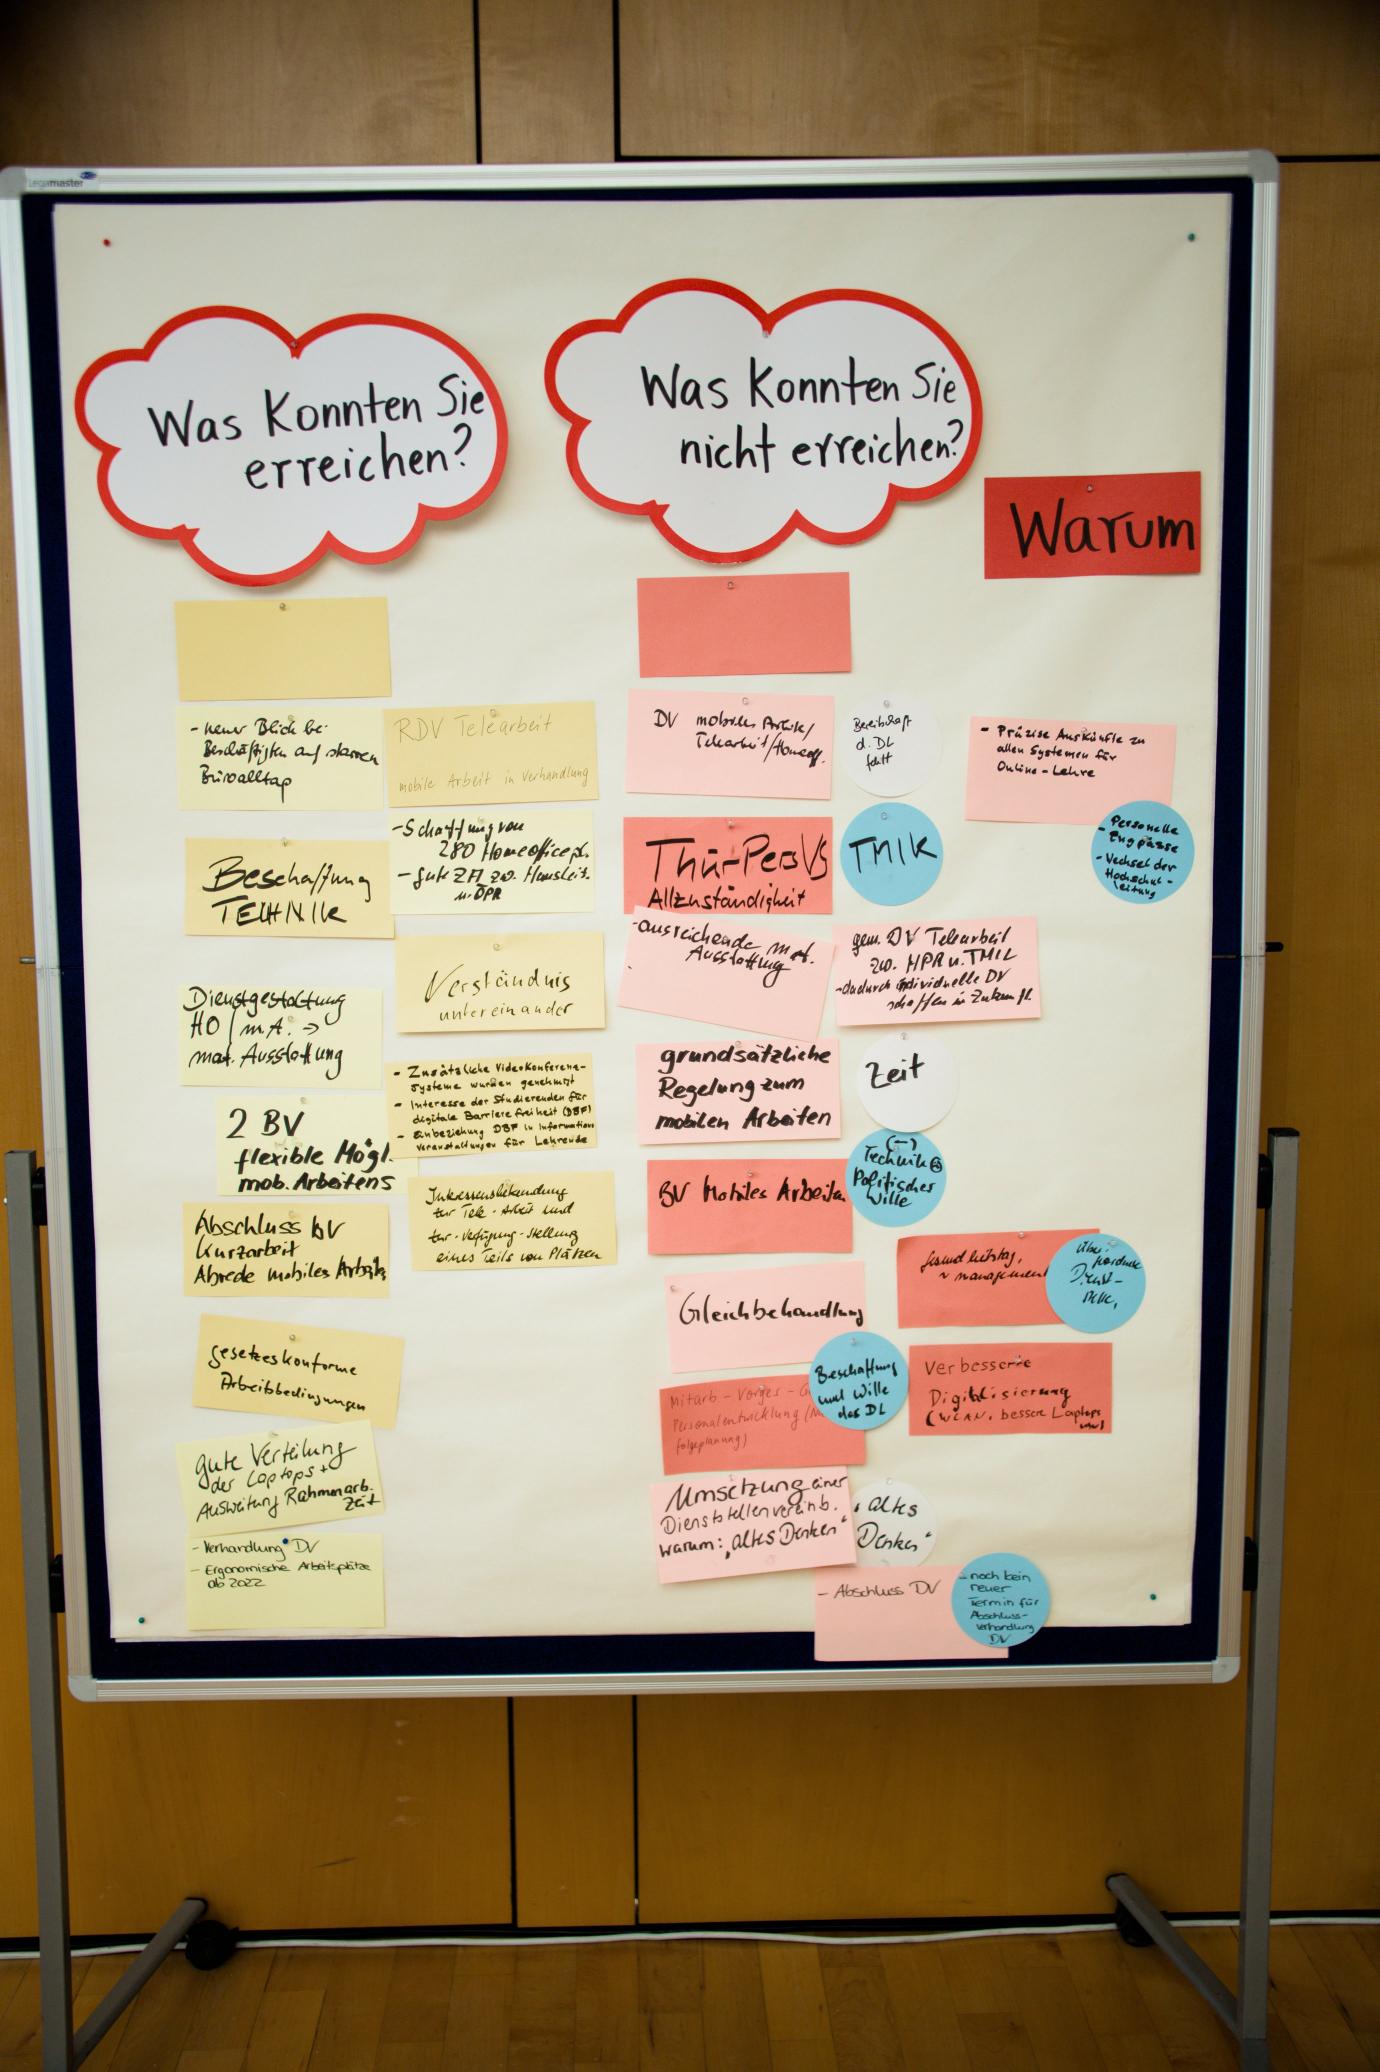 Legamaster
Was Konnten Sie
erreichen?
Was Konnten Sie
nicht erreichen?
Warum
- neuer Blick bei
Beschäftigten auf starren
Büroalltag
Beschaffung
TECHNIK
Dienstgestaltung
HO / m.A. →
mat. Ausstattung
2 BV
flexible Mögl.
mob. Arbeitens
Abschluss BV
Kurzarbeit
Abrede mobiles Arbeiten
gesetzeskonforme
Arbeitsbedingungen
gute Verteilung
der Laptops +
Ausweitung Rahmenarb.
zeit
- Verhandlung DV
- Ergonomische Arbeitsplätze
ab 2022
RDV Telearbeit
mobile Arbeit in Verhandlung
- Schaffung von
280 Homeofficepl.
- gute ZA zw. Hausleit.
u. ÖPR
Verständnis
untereinander
- Zusätzliche Videokonferenz-
systeme wurden genehmigt
- Interesse der Studierenden für
digitale Barrierefreiheit (DBF)
- Einbeziehung DBF in Informations
veranstaltungen für Lehrende
Interessensbekundung
zur Tele-Arbeit und
zur-Verfügung-Stellung
eines Teils von Plätzen
DV mobiles Arbeiten/
Telearbeit/Homeoff.
Bereitschaft
d. DL
fehlt
ThürPersVG
Allzuständigkeit
TMIK
- ausreichende mat.
Ausstattung
gem. DV Telearbeit
zw. HPR u. TMIL
- dadurch individuelle DV
schaffen in Zukunft
grundsätzliche
Regelung zum
mobilen Arbeiten
Zeit
BV Mobiles Arbeiten
(-)
Technik
Politischer
Wille
Gleichbehandlung
Beschaffung
und Wille
des DL
Mitarb - Vorges - G
Personalentwicklung (
folgeplanung)
Umsetzung einer
Dienststellenvereinb.
warum: „altes Denken"
„altes
Denken"
- Abschluss DV
- noch kein
neuer
Termin für
Abschluss-
verhandlung
DV
- Präzise Auskünfte zu
allen Systemen für
Online-Lehre
- Personelle
Engpässe
- Wechsel der
Hochschul-
leitung
management
Dienst-
stelle
Verbesserte
Digitalisierung
(WLAN, bessere Laptops